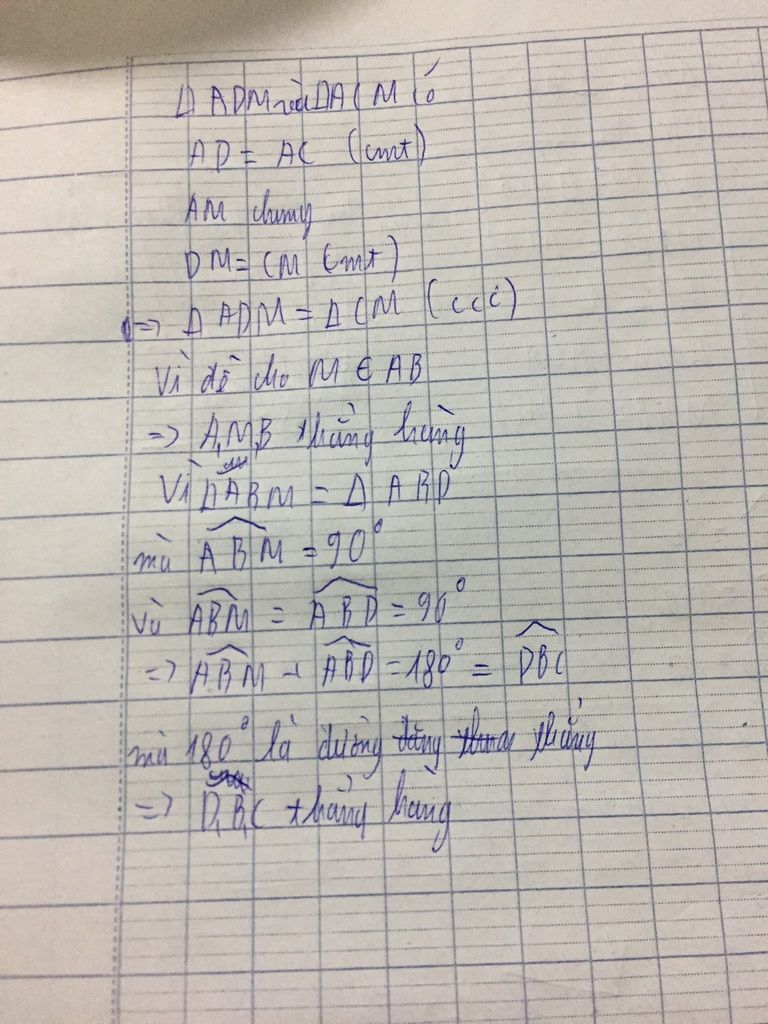 Δ ADM và ΔACM có
AD = AC (cmt)
AM chung
DM = CM (cmt)
=> Δ ADM = Δ CM (ccc)
Vì đề cho M ∈ AB
=> A,M,B thẳng hàng
Vì ΔABM = Δ ABD
mà ABM = 90°
Vì ABM = ABD = 90°
=> ABM + ABD = 180° = DBC
mà 180° là đường thẳng
=> D,B,C thẳng hàng